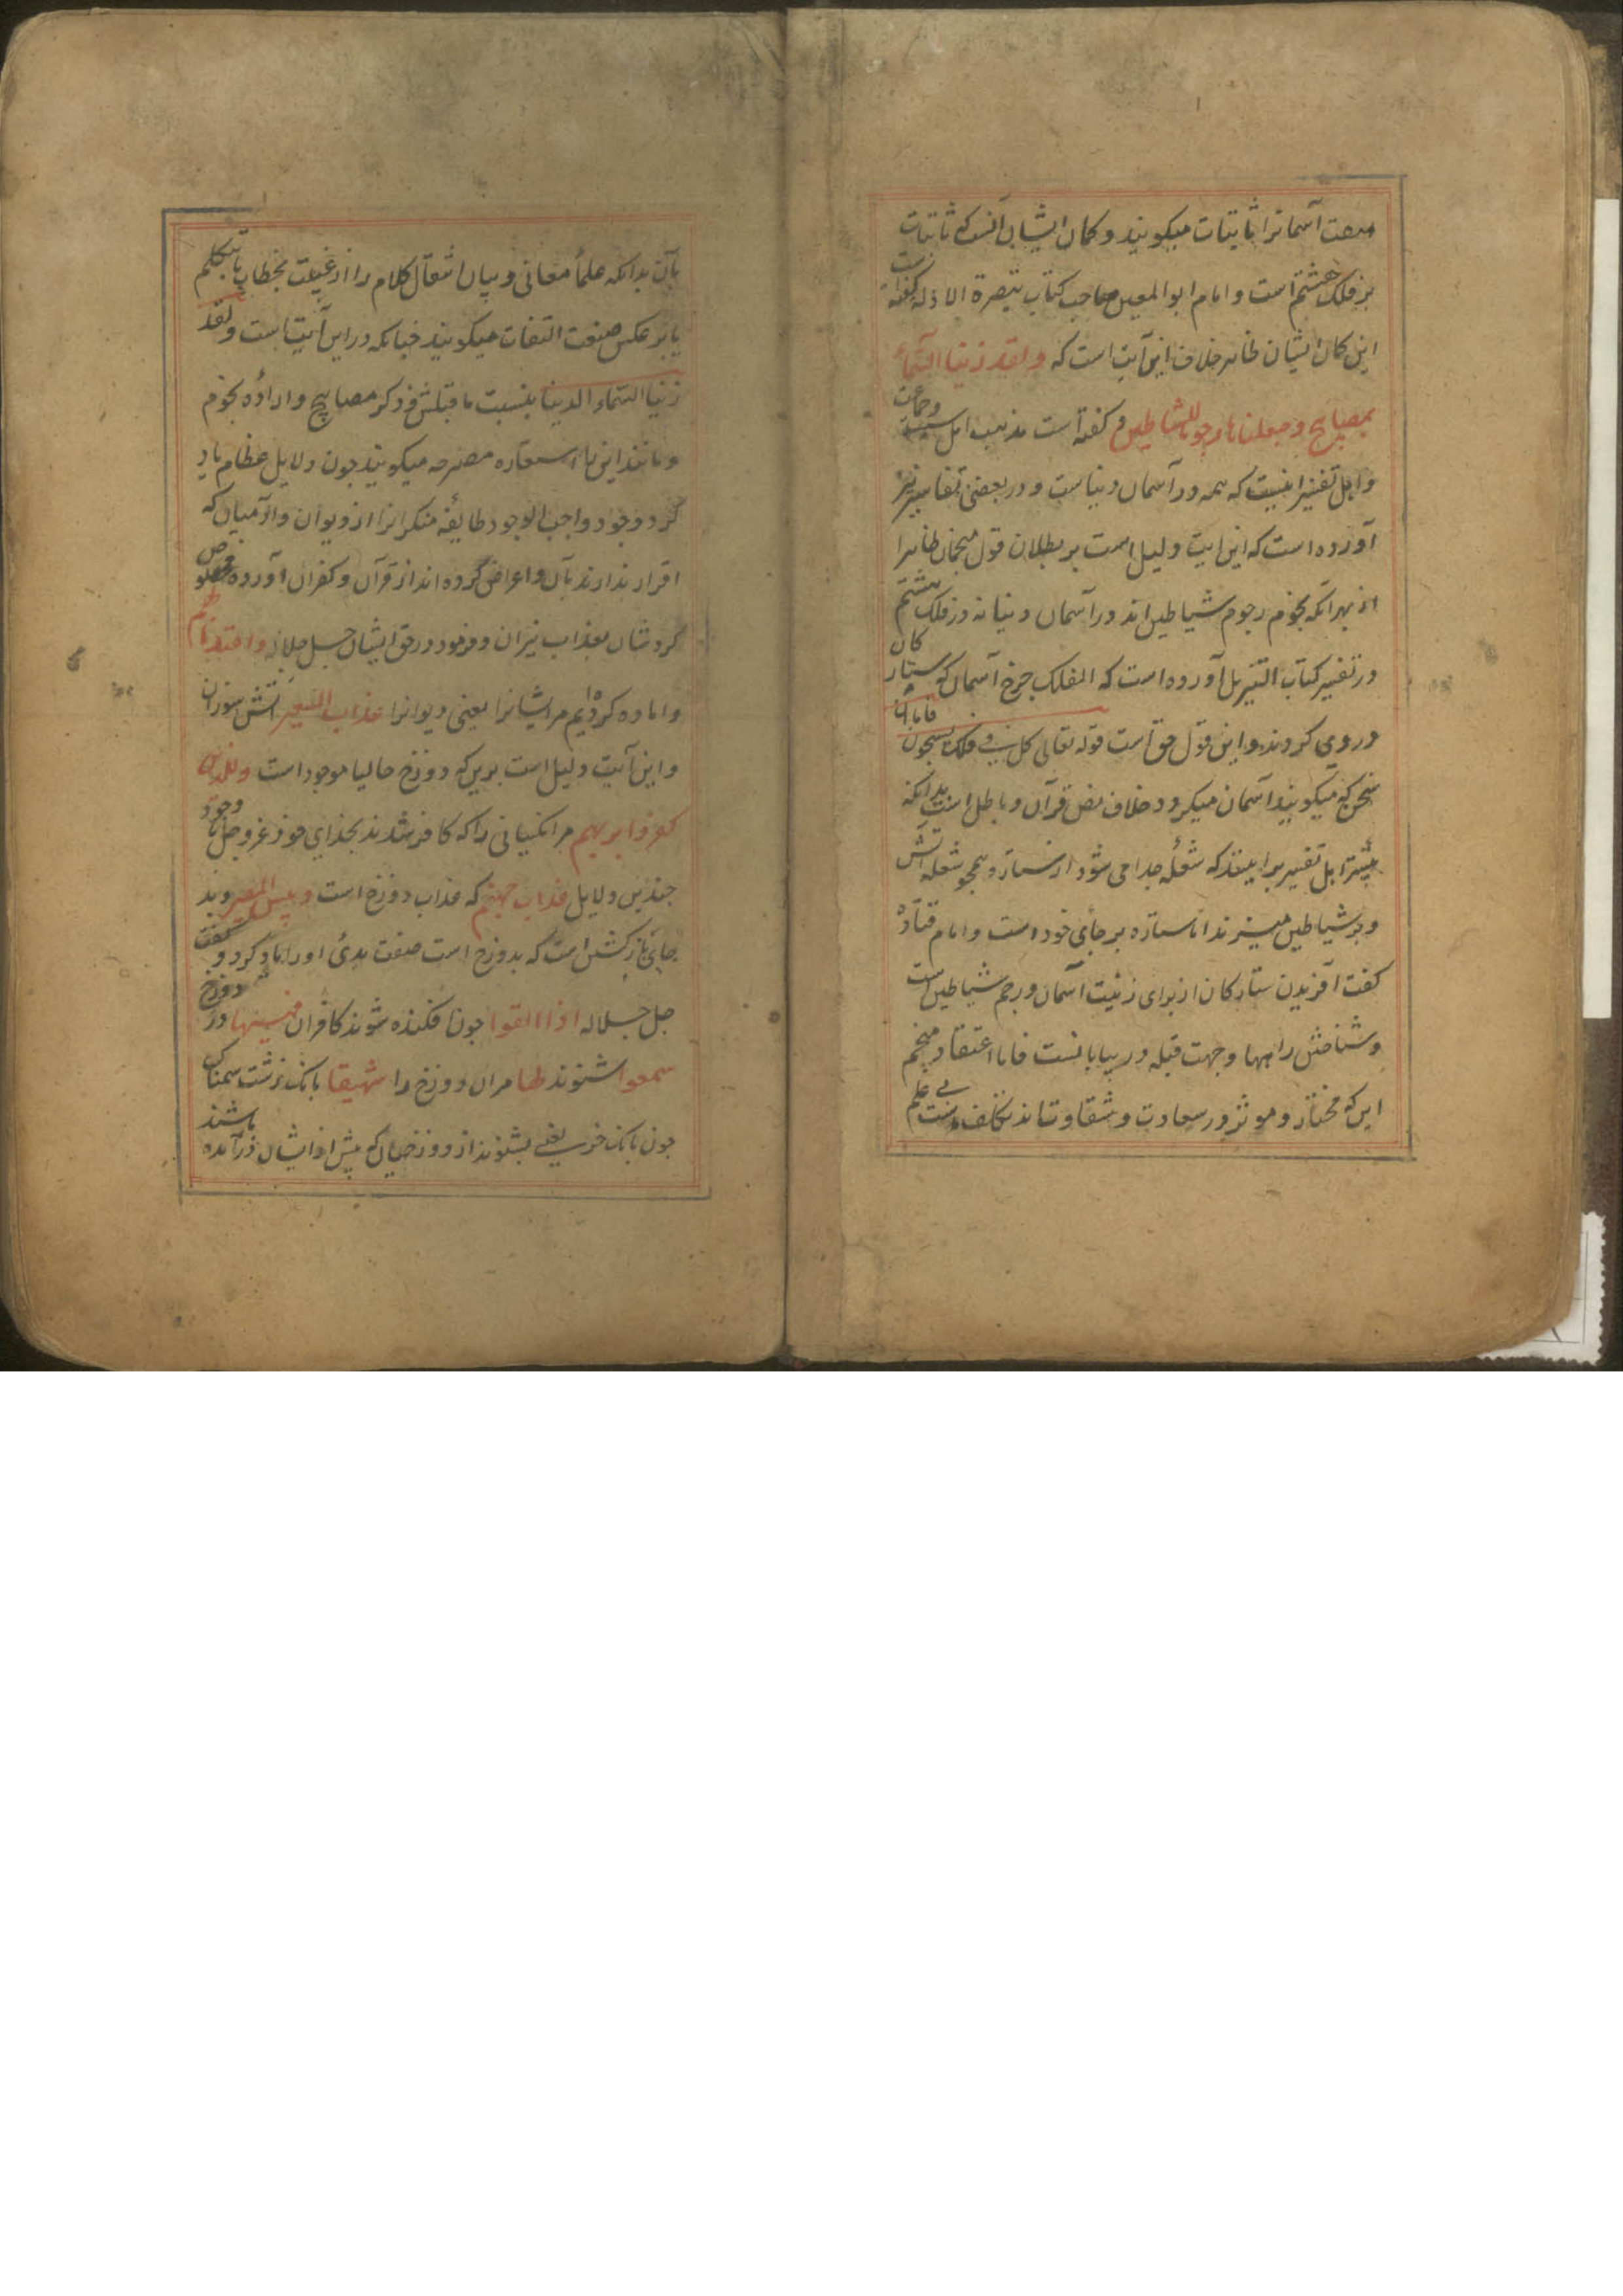 صفت آسمانرا ثابتات میکویند و کمان ایشان آنست که ثابتات
بر فلک هشتم است و امام ابو المعین صاحب کتاب تبصرة الادله کفته است
این کمان ایشان ظاهر خلاف این آیت است که ولقد زینا السماء
بمصابیح وجعلناها رجوما للشیاطین و کفته است مذهب اهل سنت وجماعت
و اهل تفسیر اینست که همه در آسمان دنیاست و در بعضی تفاسیر نیز
آورده است که این ایت دلیل است بر بطلان قول منجمان ظاهرا
از بهر آنکه نجوم رجوم شیاطین اند در آسمان دنیا نه در فلک هشتم
در تفسیر کتاب التنزیل آورده است که الفلک چرخ آسمان که ستارکان
در وی کردند و این قول حق است قوله تعالی کل فی فلک یسبحون فاما آن
سخن که میکویند آسمان میکردد خلاف نص قرآن و باطل است بدانکه
بیشتر اهل تفسیر برانیند که شعله جدا می شود از ستاره همچو شعله آتش
و بر شیاطین میزنند اما ستاره بر جای خود است و امام قتاده
کفت آفریدن ستارکان از برای زینت آسمان و رجم شیاطین است
و شناختن راهها و جهت قبله در بیابانست فاما اعتقاد منجم
این که مختار و موثر در سعادت و شقاوتاند تکلف بی علم است
بآن بدانکه علماء معانی و بیان انتقال کلام را از غیبت بخطاب یا بتکلم
یا بر عکس صنعت التفات میکویند چنانکه در این آیت است ولقد
زینا السماء الدنیا بنسبت ما قبلش و ذکر مصابیح و اراده نجوم
و مانند این را استعاره مصرحه میکویند چون دلایل عظام یاد
کرد وجود واجب الوجود طایفه منکرانرا از دیوان و آدمیان که
اقرار ندارند بآن و اعراض کرده اند از قرآن و کفران آورده مخصوص
کردشان بعذاب نیران و فرمود در حق ایشان جل جلاله واعتدنا لهم
و اماده کردیم مر ایشانرا یعنی دیوانرا عذاب السعیر آتش سوزان
و این آیت دلیل است برین که دوزخ حالیا موجود است وللذین
کفروا بربهم مر انکسانی را که کافر شدند بخدای خود عز وجل با وجود
چندین دلایل عذاب جهنم که عذاب دوزخ است وبئس المصیر و بد
جای بازکشتن است که بدوزخ است صفت بدئ او را یاد کرد و کفت
جل جلاله اذا القوا چون افکنده شوند کافران فیها در دوزخ
سمعوا شنوند لها مران دوزخ را شهیقا بانک زشت سهمناک
چون بانک خر یعنی بشنوند از دوزخیان که پیش از ایشان درآمده باشند